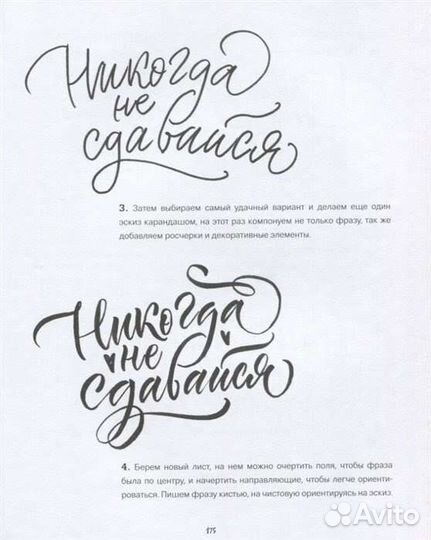 Никогда
не
сдавайся
3. Затем выбираем самый удачный вариант и делаем еще один
эскиз карандашом, на этот раз компонуем не только фразу, так же
добавляем росчерки и декоративные элементы.
Никогда
не
сдавайся
4. Берем новый лист, на нем можно очертить поля, чтобы фраза
была по центру, и начертить направляющие, чтобы легче ориенти-
роваться. Пишем фразу кистью, на чистовую ориентируясь на эскиз.
175
Avito